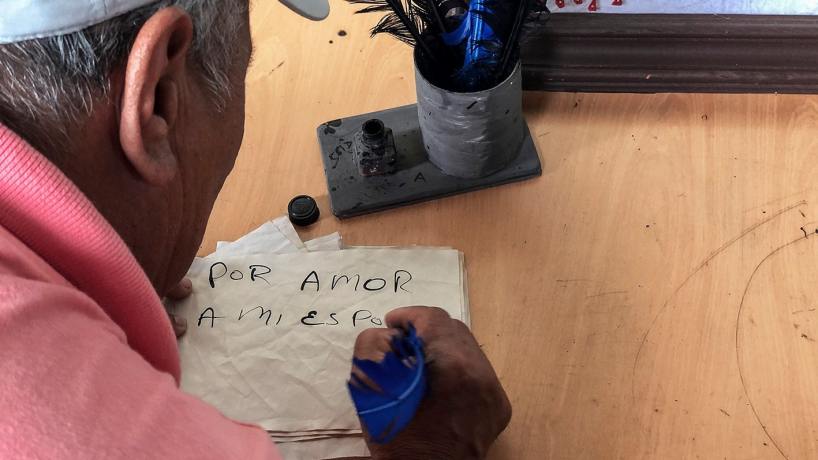 POR AMOR
A MI ESPO